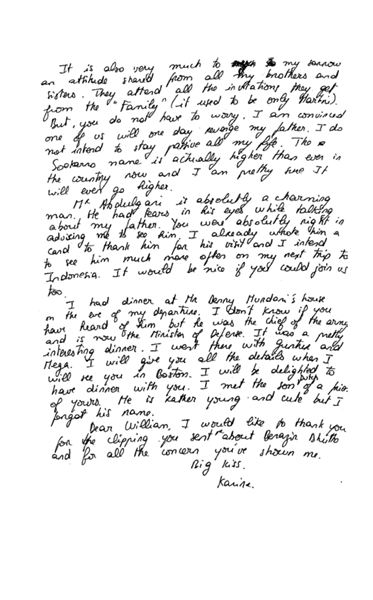 It is also very much to my sorrow
an attitude shared from all my brothers and
sisters. They attend all the invitations they get
from the "Family" (it used to be only Hartini).
But, you do not have to worry. I am convinced
one of us will one day revenge my father. I do
not intend to stay passive all my life. The
Soekarno name is actually higher than ever in
the country now and I am pretty sure it
will ever go higher.
Mr Abdulgani is absolutly a charming
man. He had tears in his eyes while talking
about my father. You were absolutly right in
advising me to see him, I already wrote him a
card to thank him for his visit and I intend
to see him much more often on my next trip to
Indonesia. It would be nice if you could join us
too.
I had dinner at Mr Benny Murdani's house
on the eve of my departure. I don't know if you
have heard of him but he was the chief of the army
and is now the Minister of Defense. It was a pretty
interesting dinner. I went there with Guntur and
Mega. I will give you all the details when I
will see you in Boston. I will be delighted to
have dinner with you. I met the son of a
of yours. He is rather young and cute but I
forgot his name.
Dear William, I would like to thank you
for the clipping you sent about Benazir Bhutto
and for all the concern you've shown me.
Big Kiss.
Karina.